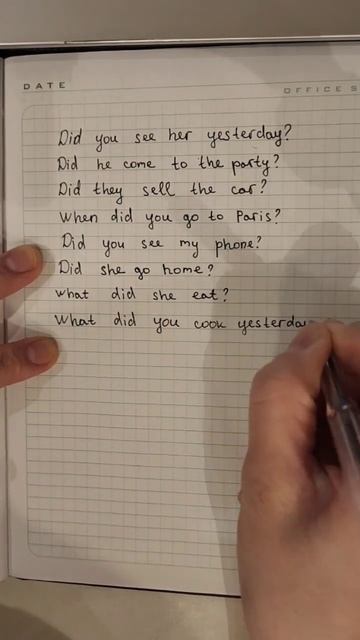 DATE
OFFICE S
Did you see her yesterday?
Did he come to the party?
Did they sell the car?
When did you go to Paris?
Did you see my phone?
Did she go home?
what did she eat?
What did you cook yesterday